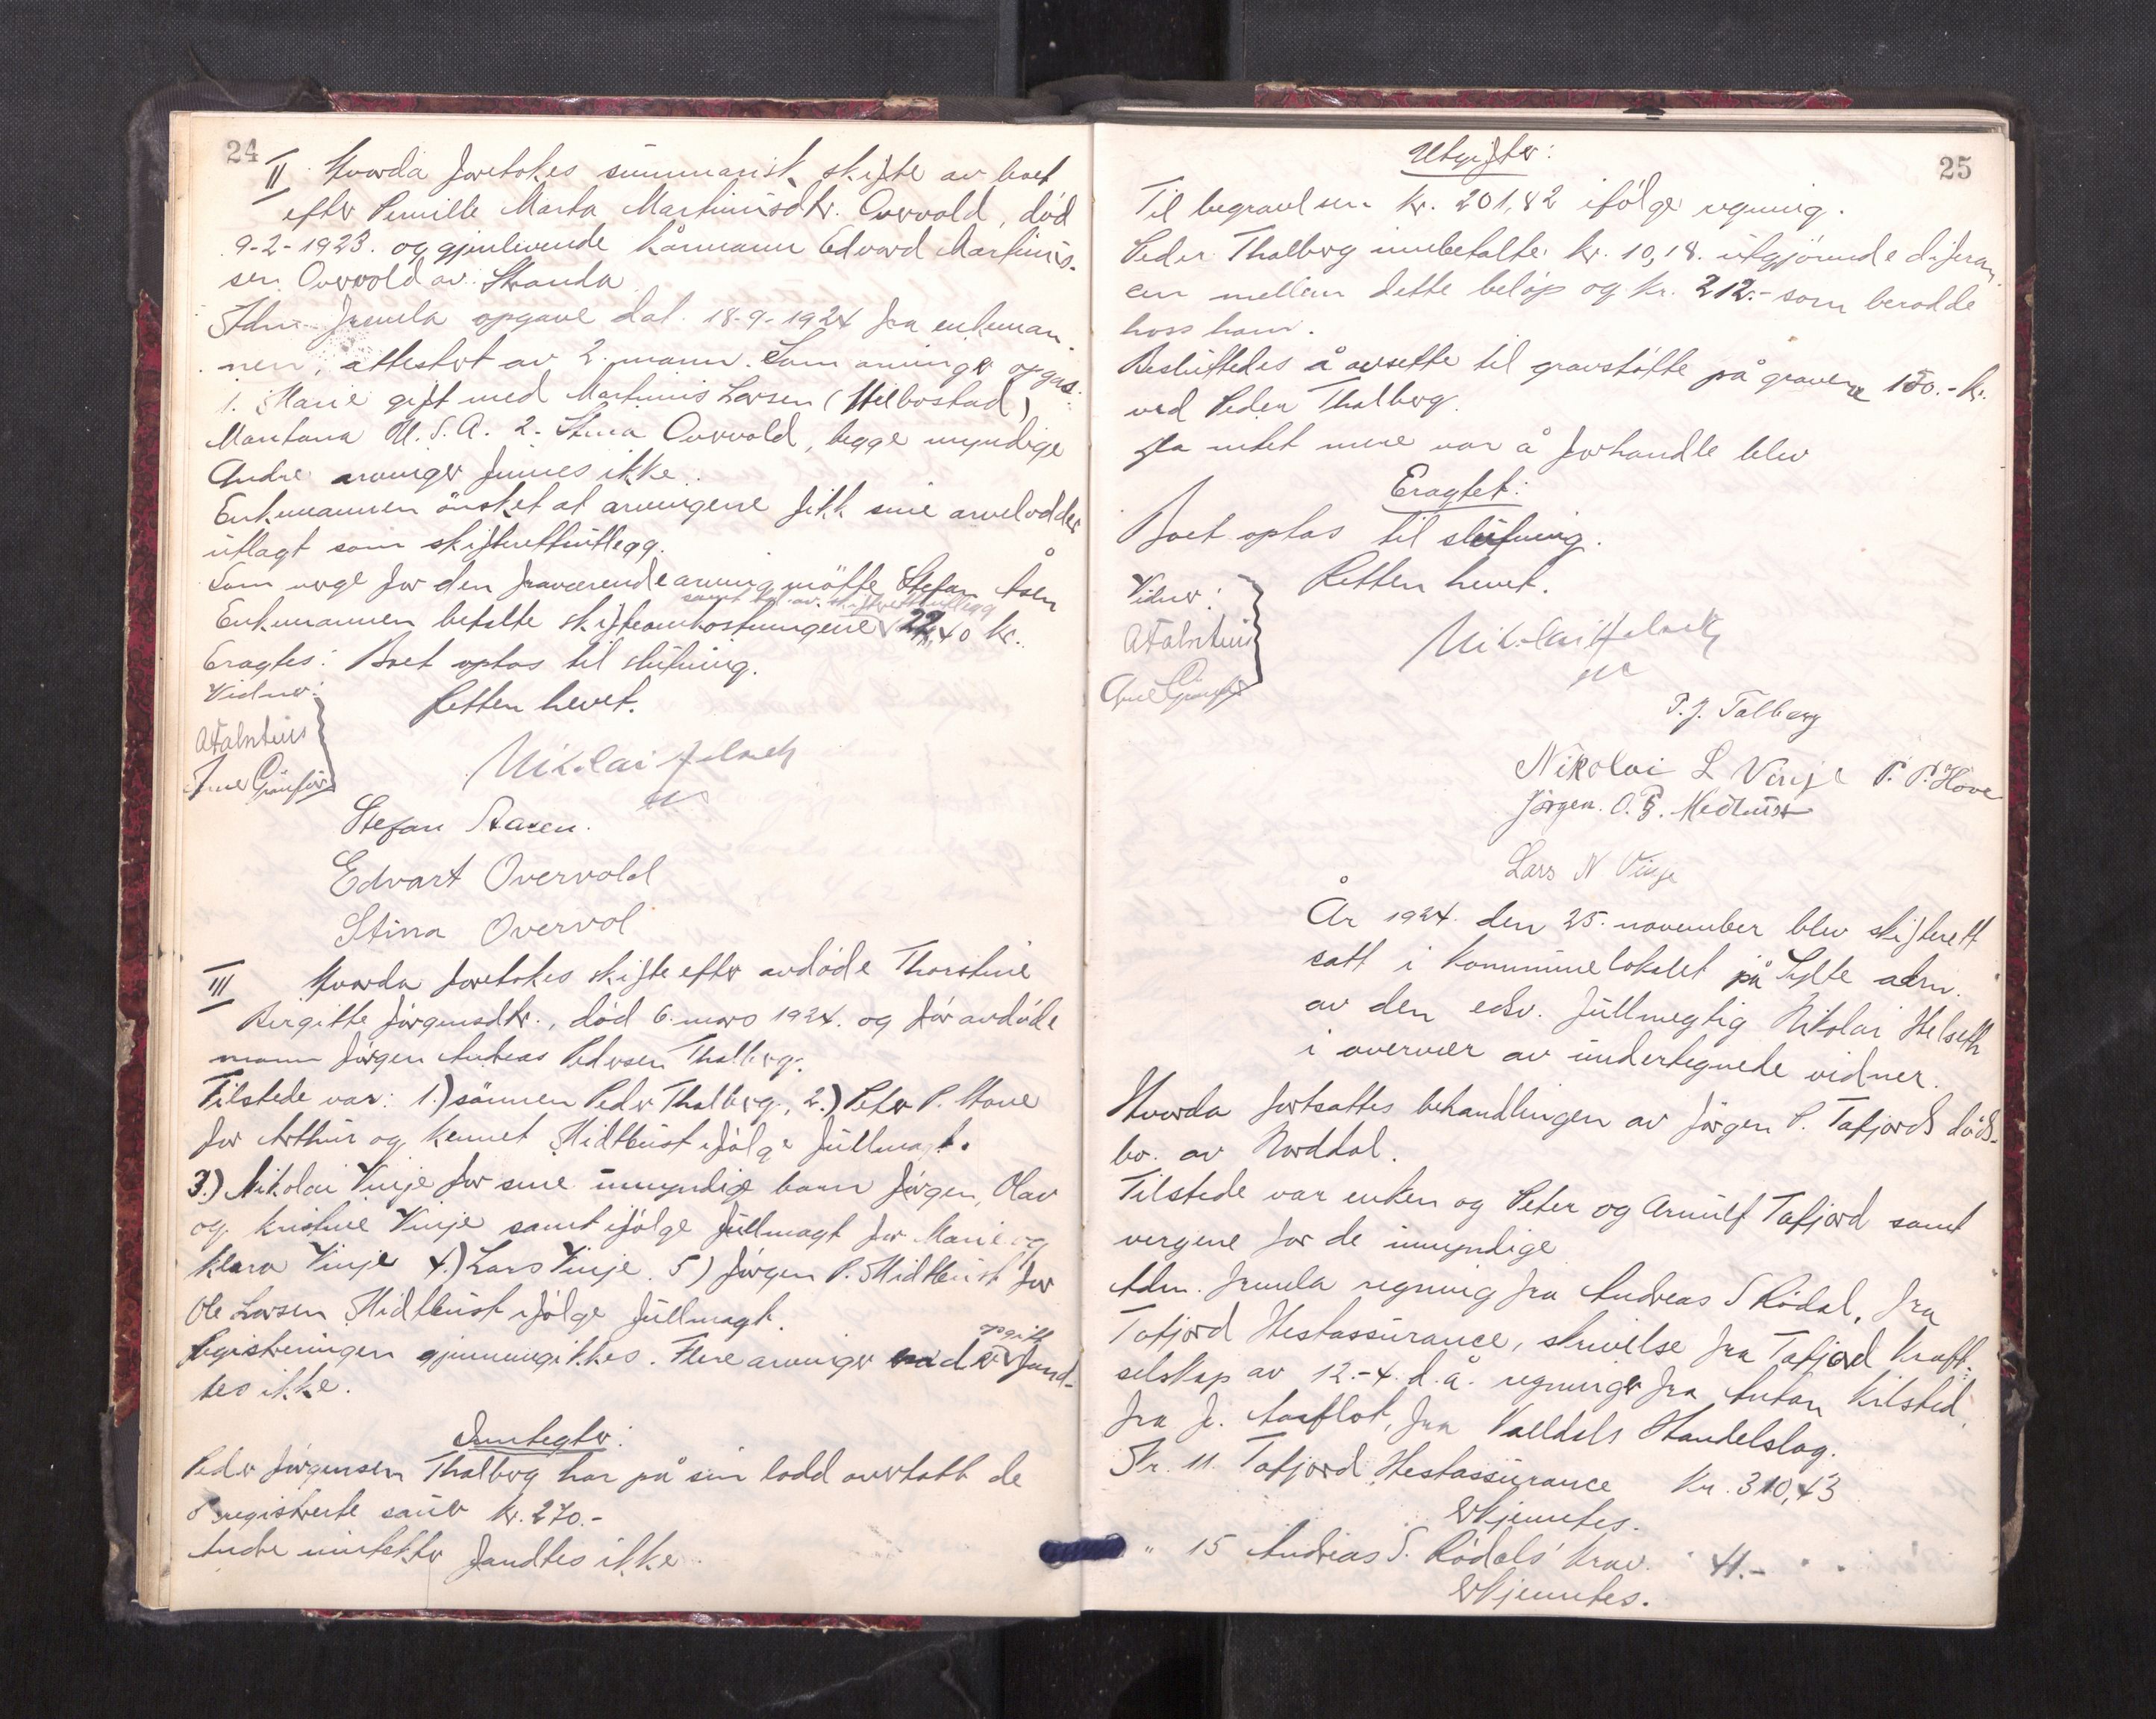 24
II Hvorda foretokes summarisk skifte av boet
efter Pernille Marta Martinusdtr. Overvold, död
9-2-1923. og gjenlevende kårmann Edvard Martinus-
sen Overvold av Stranda
Adm. fremla opgave dat. 18-9-1924 fra enkeman-
nen, attestert av 2 mann. Som arvinger opgas:
1. Marie gift med Martinus Larsen (Helbostad)
Montana U.S.A. 2. Stina Overvold, begge myndige
Andre arvinger finnes ikke.
Enkemannen önsket at arvingene fikk sine arvelodder
utlagt som skifterettsutlegg.
Som verge for den fraværende arving mötte Stefan Åsen
samt av skifterettsutlegg
Enkemannen betalte skifteomkostningene 22,40 kr.
Eragtes: Boet optas til slutning.
Vidner:
Retten hevet.
Nikolai Helseth
Stefan Aasen.
Edvart Overvold
Stina Overvol
III Hvorda foretokes skifte efter avdöde Thorstine
Birgitte Jörgensdtr., död 6. mars 1924. og för avdöde
mann Jörgen Andreas Pedersen Thalberg.
Tilstede var: 1.) sönnen Peder Thalberg, 2.) Peter P. Hove
for Arthur og Kennet Midtbust ifölge fullmagt.
3.) Nikolai Vinje for sine umyndige barn Jörgen, Olav
og Kristine Vinje samt ifölge fullmagt for Marie og
Klara Vinje 4.) Lars Vinje. 5) Jörgen P. Midtbust for
Ole Larsen Midtbust ifölge fullmagt.
opgitt
Registreringen gjennemgikkes. Flere arvinger end fand-
tes ikke.
Inntegter:
Peder Jörgensen Thalberg har på sin lodd overtatt de
5 registrerte sauer kr. 270.-
Andre inntekter fandtes ikke.
25
Utgifter:
Til begravelsen kr. 201,82 ifölge regning.
Peder Thalberg innbetalte kr. 10,18. utgjörende diferan-
cen mellem dette belöp og kr. 212.- som berodde
hoss ham.
Besluttedes å avsette til gravstötte på gravene 150.- kr.
ved Peder Thalberg.
Da intet mere var å forhandle blev
Eragtet:
Boet optas til slutning.
Retten hevet.
Vidner:
Nikolai Helseth
P. J. Talberg
Nikolai L Vinje P. P. Hove
Jörgen. O. P. Midtbust
Lars N Vinje
År 1924. den 25. november blev skifterett
satt i kommunelokalet på Sylte adm.
av den edsv. fullmegtig Nikolai Helseth
i overvær av undertegnede vidner.
Hvorda fortsattes behandlingen av Jörgen P. Tafjords döds-
bo. av Norddal.
Tilstede var enken og Peter og Arnulf Tafjord samt
vergene for de umyndige
Adm. fremla regning fra Andreas S Rödal, fra
Tafjord Hestassurance, skrivelse fra Tafjord Kraft-
selskap av 12.-4. d.å. regninger fra Anton Kilsted,
fra J. Aasflot, fra Valldals Handelslag.
Kr. 11. Tafjord Hestassurance Kr. 310,43
Erkjentes.
" 15 Andreas S. Rödals krav. " 41.-
Erkjentes.